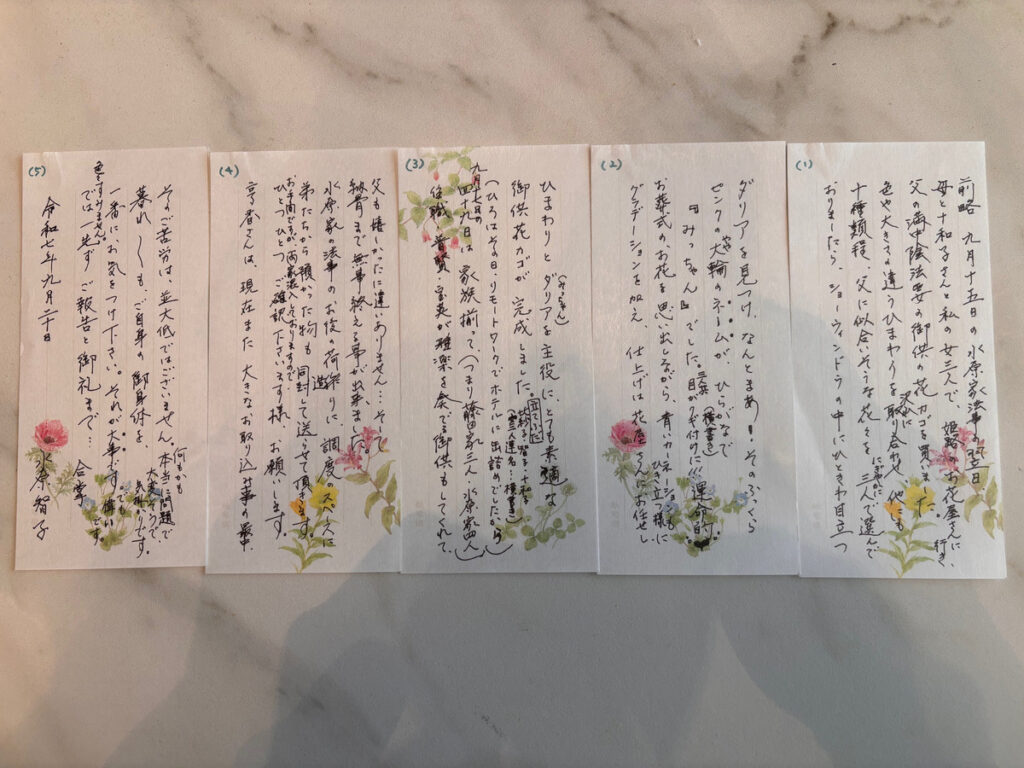 (1)
前略 九月十五日の水原家法事の翌日
母と十和子さんと私の女三人で、姫路のお花屋さんに行き、
父の満中陰法要の御供の花カゴを買いました。
色や大きさの違うひまわりを沢山取り合わせ、他にも
十種類程、父に似合いそうな花々をにぎやかに三人で選んで
おりましたら、ショーウィンドウの中にひときわ目立つ
(2)
ダリアを見つけ、なんとまあ!そのふっくら
ピンクの大輪のネームが、ひらがなで
『みっちゃん』でした。三人(横書き)目がクギ付けに!!運命的
お葬式のお花を思い出しながら、青いカーネーションも
グラデーションを加え、ひき立つ様に仕上げは花屋さんにお任せし
(3)
ひまわりとダリア(みっちゃん)を主役に、とても素適な
御供花カゴが完成しました。立てていた
(ひろはその日、リモートワークでホテルに缶詰めでしたから)
九月十七日の四十九日は家族揃って、(つまり藤凱三人・水原家四人)
住職、雅楽を奏でる御供もしてくれて、
(4)
父も嬉しかったに違いありません…そして
納骨まで無事終える事が出来ました。
水原家の法事のお後の荷造りに、調度のスペースに
弟たちから預かった物も同封して送らせて頂きます。
お手間ですが、両家混入しておりますので
ひとつひとつご確認下さいます様、お願いします。
さんは、現在また大きなお取り込み事の最中、
(5)
そのご苦労は、並大低ではございません。
暮れ〱も、ご自身の御身体を、何もかも本当に問題で大変そうで、
一番にお気をつけ下さい。それが大事です。
乱すみません。では一先ずご報告と御礼まで… 合掌
令和七年九月二十日
水原智子